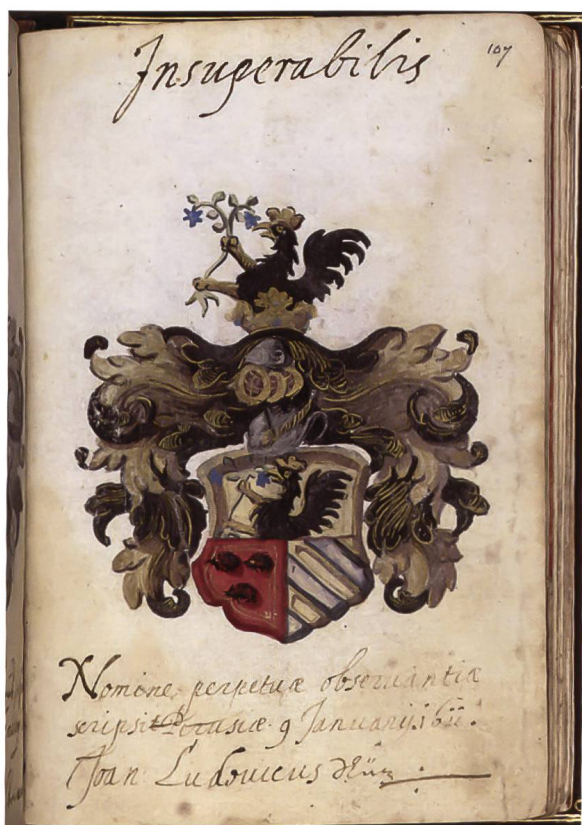 107
Insuperabilis
Nomine perpetuæ obseruantiæ
scripsit 9 Januarij 1611.
Joan: Ludouicus